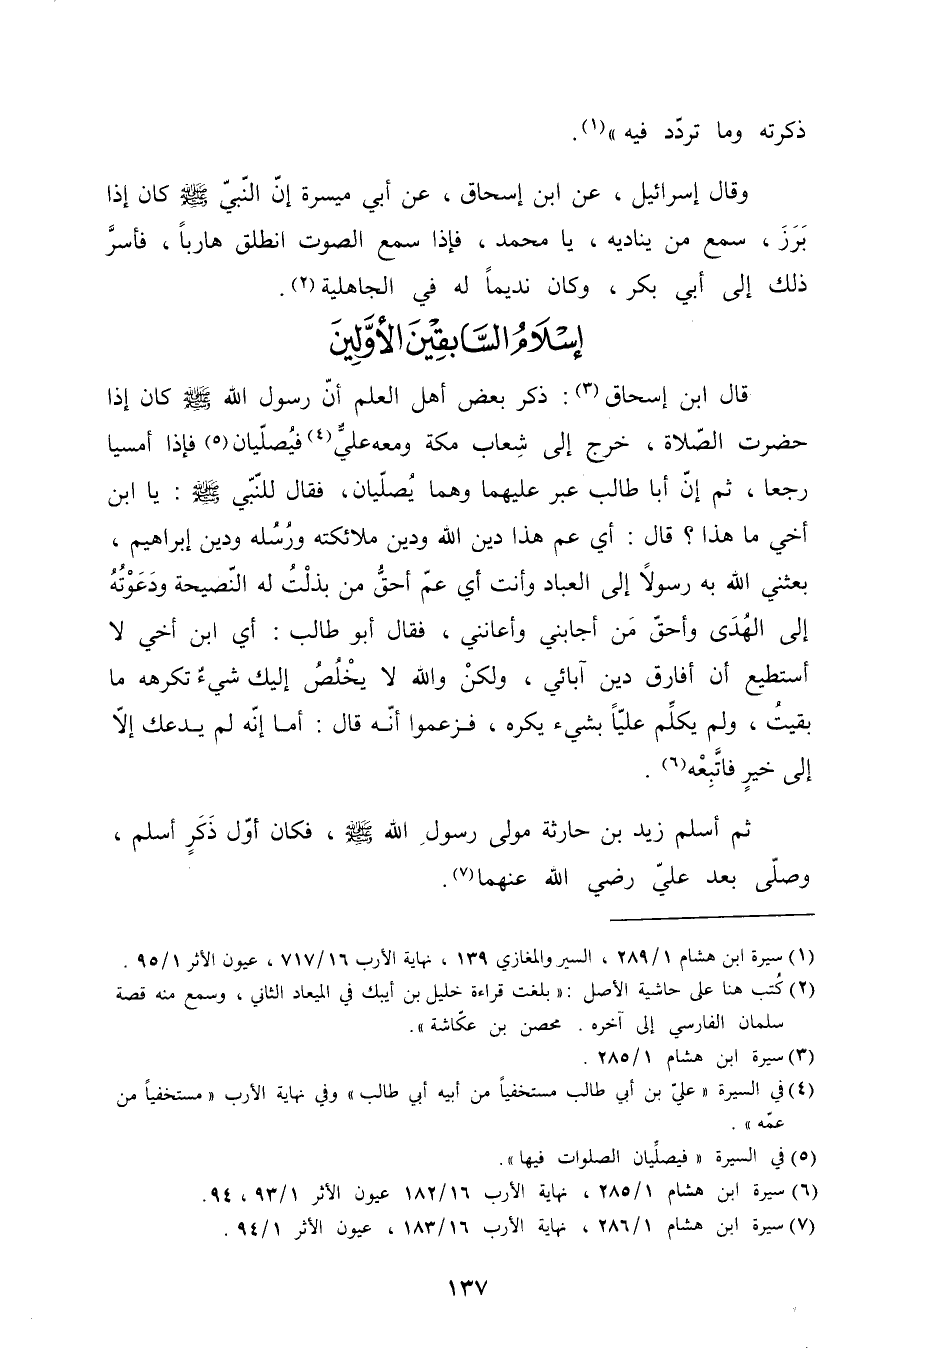 ذكرته وما تردّد فيه »(١).
وقال إسرائيل ، عن ابن إسحاق ، عن أبي ميسرة إنّ النّبيّ ﷺ كان إذا
بَرَزَ ، سمع من يناديه ، يا محمد ، فإذا سمع الصوت انطلق هارباً ، فأسرَّ
ذلك إلى أبي بكر ، وكان نديماً له في الجاهلية (٢) .
إسْلَامُ السَّابِقِينَ الأَوَّلِينَ
قال ابن إسحاق (٣) : ذكر بعض أهل العلم أنّ رسول الله ﷺ كان إذا
حضرت الصّلاة ، خرج إلى شِعاب مكة ومعه عليٌّ (٤) فيُصلّيان (٥) فإذا أمسيا
رجعا ، ثم إنّ أبا طالب عبر عليهما وهما يُصلّيان، فقال للنّبّي ﷺ : يا ابن
أخي ما هذا ؟ قال : أي عم هذا دين الله ودين ملائكته ورُسُله ودين إبراهيم ،
بعثني الله به رسولاً إلى العباد وأنت أي عمّ أحقُّ من بذلْتُ له النّصيحة ودَعَوْتُهُ
إلى الهُدَى وأحقّ مَن أجابني وأعانني ، فقال أبو طالب : أي ابن أخي لا
أستطيع أن أفارق دين آبائي ، ولكنْ والله لا يخْلُصُ إليك شيءٌ تكرهه ما
بقيتُ ، ولم يكلِّم عليّاً بشيء يكره ، فـزعموا أنّـه قال : أمـا إنّه لم يـدعك إلاّ
إلى خيرٍ فاتَّبِعْه(٦) .
ثم أسلم زيد بن حارثة مولى رسولِ الله ﷺ ، فكان أوّل ذَكَرٍ أسلم ،
وصلّى بعد عليّ رضي الله عنهما(٧).
(١) سيرة ابن هشام ٢٨٩/١ ، السير والمغازي ١٣٩ ، نهاية الأرب ٧١٧/١٦ ، عيون الأثر ٩٥/١ .
(٢) كُتب هنا على حاشية الأصل :« بلغت قراءة خليل بن أيبك في الميعاد الثاني ، وسمع منه قصة
سلمان الفارسي إلى آخره . محصن بن عكّاشة ».
(٣) سيرة ابن هشام ٢٨٥/١ .
(٤) في السيرة « عليّ بن أبي طالب مستخفياً من أبيه أبي طالب » وفي نهاية الأرب « مستخفياً من
عمّه » .
(٥) في السيرة « فيصلِّيان الصلوات فيها ».
(٦) سيرة ابن هشام ٢٨٥/١ ، نهاية الأرب ١٨٢/١٦ عيون الأثر ٩٣/١ ، ٩٤.
(٧) سيرة ابن هشام ٢٨٦/١ ، نهاية الأرب ١٨٣/١٦ ، عيون الأثر ٩٤/١ .
١٣٧